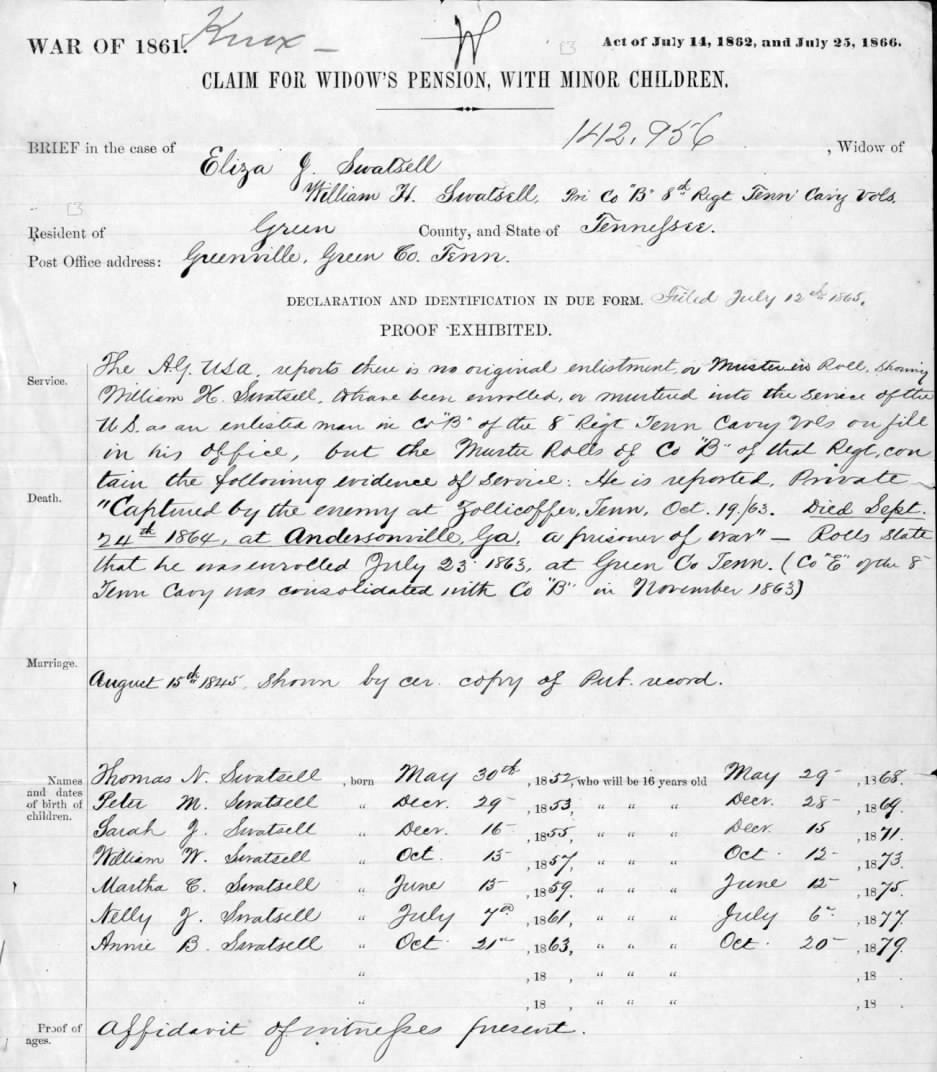 WAR OF 1861. Knox –
W
Act of July 14, 1862, and July 25, 1866.
CLAIM FOR WIDOW'S PENSION, WITH MINOR CHILDREN.
142,956
BRIEF in the case of Eliza J. Swatsell , Widow of
William H. Swatsell, Pri Co "B" 8th Regt Tenn Cavy Vols.
Resident of Green County, and State of Tennessee.
Post Office address: Greenville, Green Co. Tenn.
DECLARATION AND IDENTIFICATION IN DUE FORM. Filed July 12th 1865.
PROOF EXHIBITED.
Service. The A.G. U.S.A. reports there is no original enlistment, or Muster in Roll, showing
William H. Swatsell, to have been enrolled, or mustered into the service of the
U.S. as an enlisted man in Co "B" of the 8 Regt Tenn Cavry Vols on file
in his Office, but the Muster Rolls of Co "B" of that Regt, con
tain the following evidence of service: He is reported, Private
Death. "Captured by the enemy at Zollicoffer, Tenn, Oct. 19/63. Died Sept.
24th 1864, at Andersonville, Ga, a prisoner of war" – Rolls state
that he was enrolled July 23 1863, at Green Co Tenn. (Co "E" of the 8
Tenn Cavy was consolidated with Co "B" in November 1863)
Marriage. August 15th 1845, shown by cer. copy of Pub. record.
Names and dates of birth of children.
Thomas N. Swatsell , born May 30th , 1852, who will be 16 years old May 29 , 1868.
Peter M. Swatsell " Decr. 29 , 1853, " " " Decr. 28 , 1869.
Sarah J. Swatsell " Decr. 16 , 1855, " " " Decr 15 , 1871.
William W. Swatsell " Oct 13 , 1857, " " " Oct. 12 , 1873.
Martha C. Swatsell " June 13 , 1859. " " " June 12 , 1875.
Nelly J. Swatsell " July 7th , 1861, " " " July 6 , 1877.
Annie B. Swatsell " Oct 21st , 1863, " " " Oct. 20 , 1879.
" , 18 , " " " , 18 .
" , 18 , " " " , 18 .
Proof of ages. Affidavit of witnesses present.